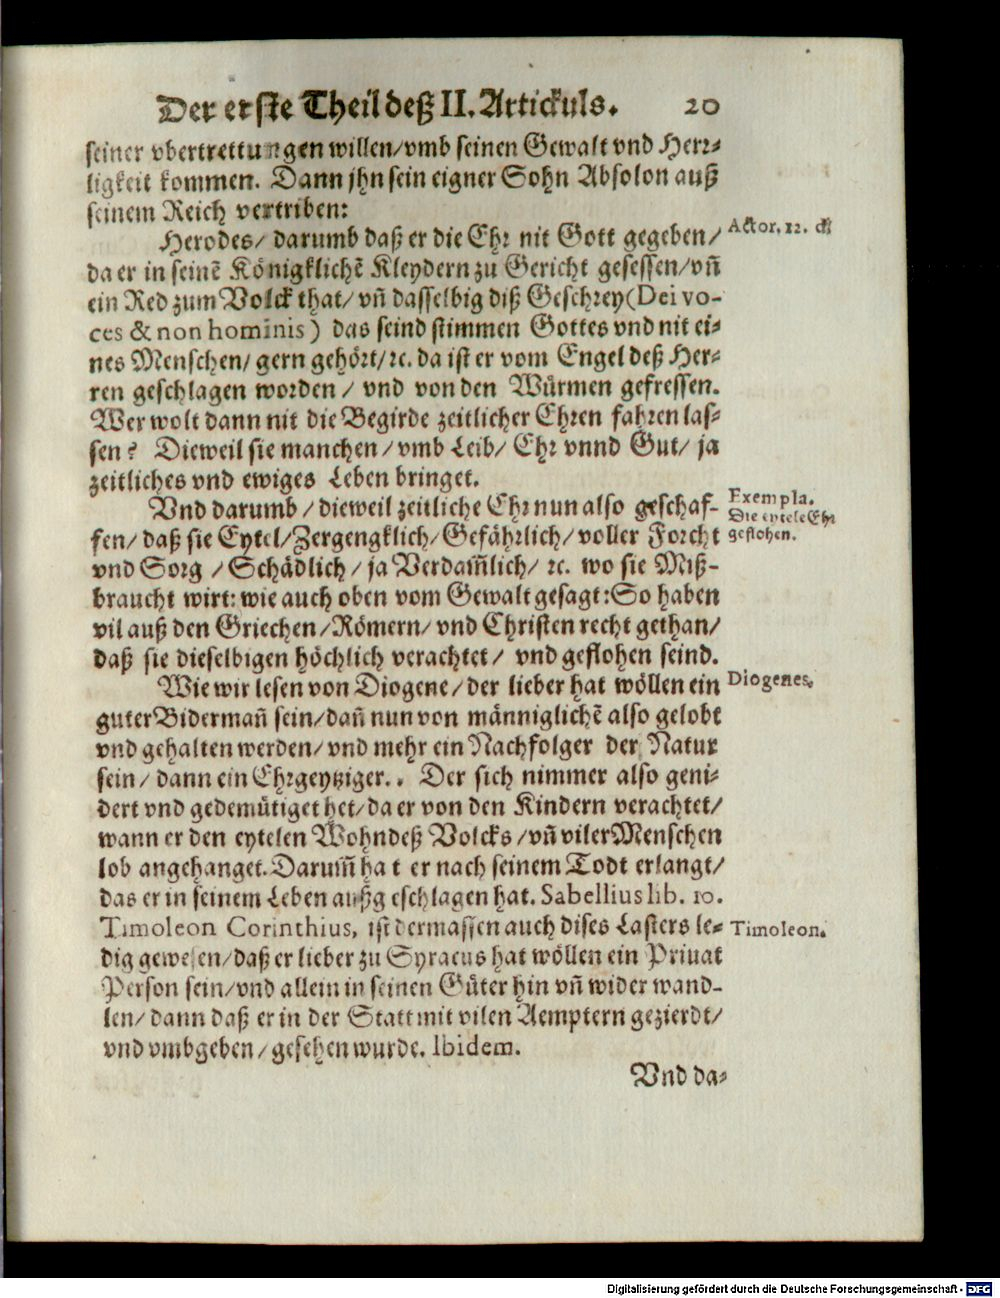 Der erste Theil deß II. Artickuls. 20
seiner vbertrettungen willen/vmb seinen Gewalt vnd Herr⸗
ligkeit kommen. Dann jhn sein eigner Sohn Absolon auß
seinem Reich vertriben:
Herodes/ darumb daß er die Ehr nit Gott gegeben/
da er in seinē Königklichē Kleydern zu Gericht gesessen/vn̄
ein Red zum Volck that/ vn̄ dasselbig diß Geschrey(Dei vo-
ces & non hominis) das seind stimmen Gottes vnd nit ei⸗
nes Menschen/ gern gehört/ꝛc. da ist er vom Engel deß Her⸗
ren geschlagen worden / vnd von den Würmen gefressen.
Wer wolt dann nit die Begirde zeitlicher Ehren fahren las⸗
sen? Dieweil sie manchen/vmb Leib/ Ehr vnnd Gut/ ja
zeitliches vnd ewiges Leben bringet.
Vnd darumb / dieweil zeitliche Ehr nun also geschaf-
fen/ daß sie Eytel/Zergengklich/Gefährlich/voller Forcht
vnd Sorg /Schädlich / ja Verdam̄lich/ ꝛc. wo sie Miß-
braucht wirt: wie auch oben vom Gewalt gesagt: So haben
vil auß den Griechen/Römern/ vnd Christen recht gethan/
daß sie dieselbigen höchlich verachtet/ vnd geflohen seind.
Wie wir lesen von Diogene/der lieber hat wöllen ein
guter Biderman̄ sein/dan̄ nun von männiglichē also gelobt
vnd gehalten werden/vnd mehr ein Nachfolger der Natur
sein/ dann ein Ehrgeytziger.. Der sich nimmer also geni⸗
dert vnd gedemütiget het/da er von den Kindern verachtet/
wann er den eytelen Wohn deß Volcks /vn̄ viler Menschen
lob angehanget. Darum̄ hat er nach seinem Todt erlangt/
das er in seinem Leben außgeschlagen hat. Sabellius lib. 10.
Timoleon Corinthius, ist dermassen auch dises Lasters le⸗
dig gewesen/daß er lieber zu Syracus hat wöllen ein Priuat
Person sein/vnd allein in seinen Güter hin vn̄ wider wand-
len/ dann daß er in der Statt mit vilen Aemptern gezierdt/
vnd vmbgeben/gesehen wurde. Ibidem.
Vnd da⸗
Actor. 12. d
Exempla.
Die eytele Ehr
geflohen.
Diogenes.
Timoleon.
Digitalisierung gefördert durch die Deutsche Forschungsgemeinschaft - DFG